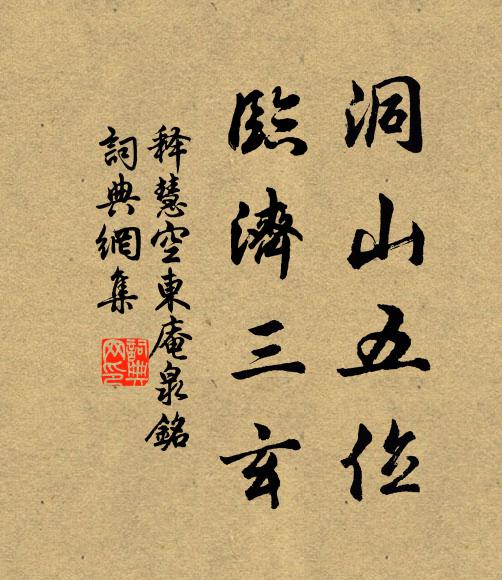 洞山五位
臨濟三玄
釋慧空東庵泉銘
詞典網集
詞典網印